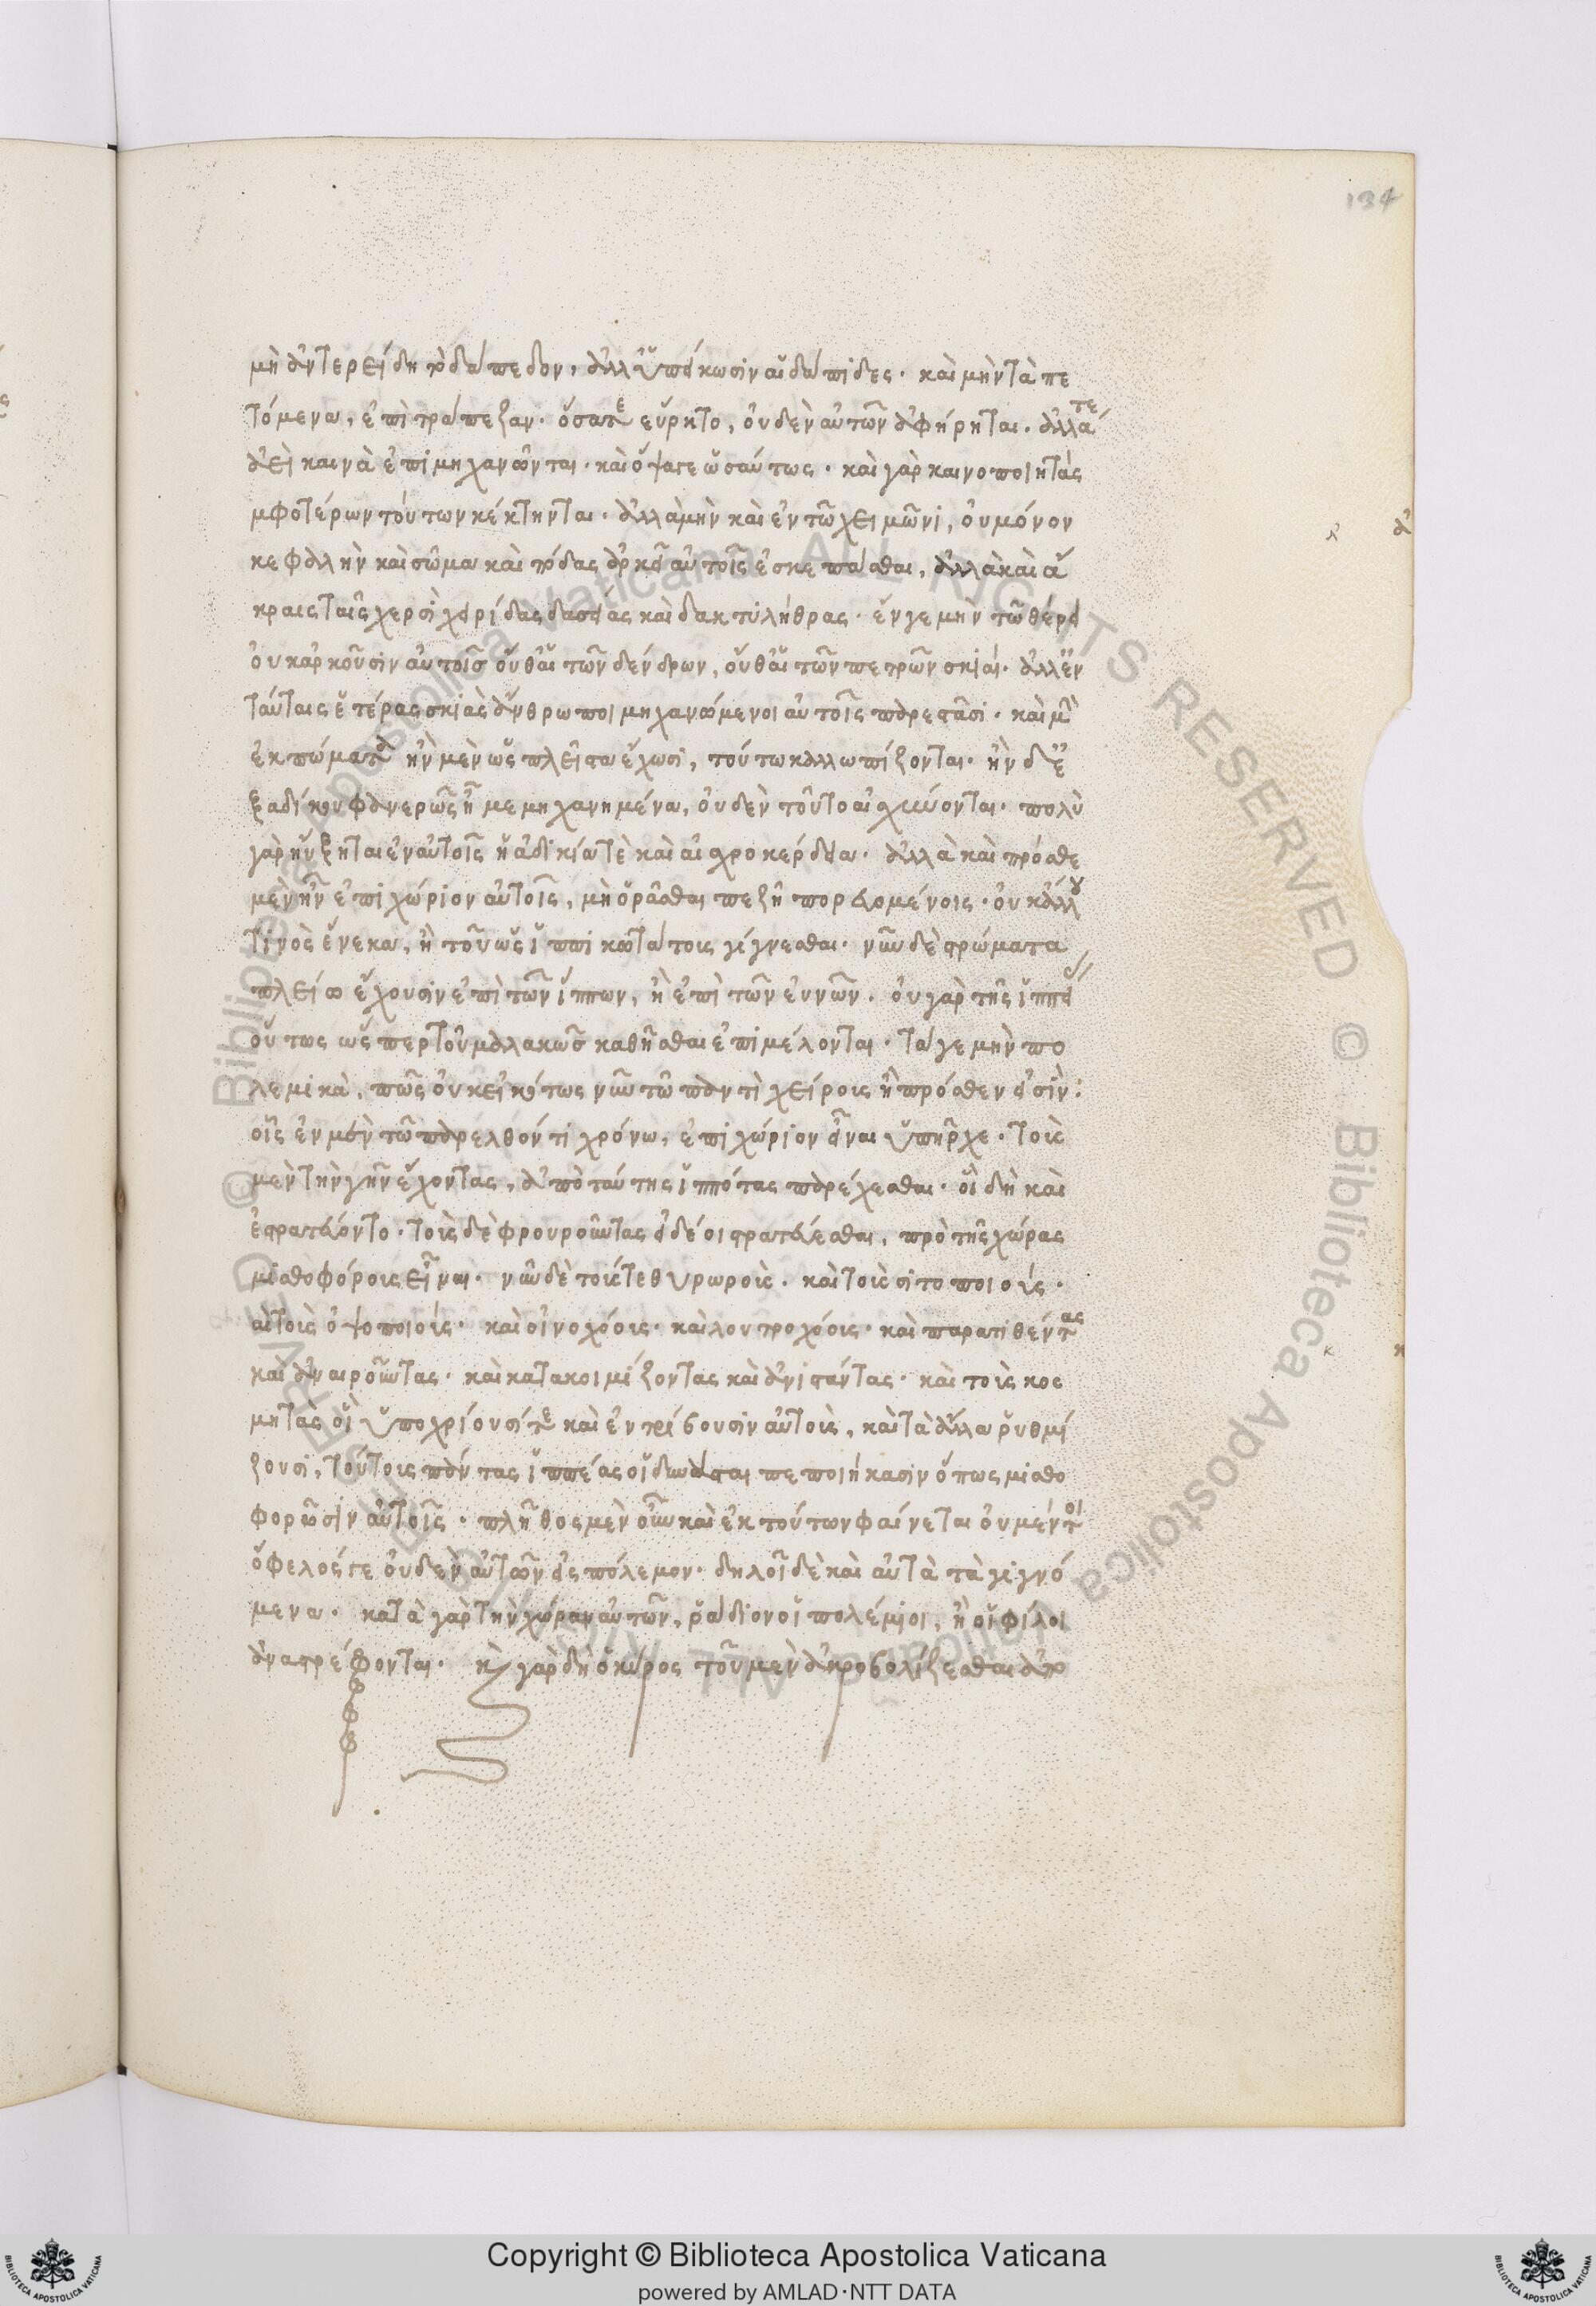 134
μὴ ἀντερείδη τὸ δάπεδον, ἀλλ' ὑπείκωσιν αἱ δάπιδες. καὶ μὴν τὰ πε
τόμενα, ἐπὶ τράπεζαν. ὅσα τε εὕρητο, οὐδὲν αὐτῶν ἀφήρηται. ἄλλά τε
ἀεὶ καινὰ ἐπιμηχανῶνται. καὶ ὄψα γε ὡσαύτως. καὶ γὰρ καινοποιητάς
μφοτέρων τούτων κέκτηνται. ἀλλὰ μὴν καὶ ἐν τῶ χειμῶνι, οὐ μόνον
κεφαλὴν καὶ σῶμα καὶ πόδας ἀρκεῖ αὐτοῖς ἐσκεπάσθαι, ἀλλὰ καὶ ἄ
κραις ταῖς χερσὶ χειρίδας δασείας καὶ δακτυλήθρας. ἔν γε μὴν τῶ θέρει
οὐκ ἀρκοῦσιν αὐτοῖσ οὔθ' αἱ τῶν δένδρων, οὔθ' αἱ τῶν πετρῶν σκιαί. ἀλλ' ἐν
ταύταις ἑτέρας σκιὰς ἄνθρωποι μηχανώμενοι αὐτοῖς παρεστᾶσι. καὶ μὴν
ἐκπώματα ἢν μὲν ὡς πλεῖστα ἔχωσι, τούτω καλλωπίζονται. ἢν δ' ἐ
ξ ἀδίκου φανερῶς ἦ μεμηχανημένα, οὐδὲν τοῦτο αἰσχύνονται. πολὺ
γὰρ ηὔξηται ἐν αὐτοῖς ἡ ἀδικία τὲ καὶ αἰσχροκέρδεια. ἀλλὰ καὶ πρόσθε
μὲν ἦν ἐπιχώριον αὐτοῖς, μὴ ὁρᾶσθαι πεζῆ πορευομένοις. οὐκ ἄλλου
τινὸς ἕνεκα, ἢ τοῦ ὡς ἱππικωτάτους γίγνεσθαι. νῦν δὲ στρώματα
πλείω ἔχουσιν ἐπὶ τῶν ἵππων, ἢ ἐπὶ τῶν εὐνῶν. οὐ γὰρ τῆς ἱππεί
οὕτως ὥς περ τοῦ μαλακῶσ καθῆσθαι ἐπιμέλονται. τά γε μὴν πο
λεμικὰ, πῶς οὐκ εἰκότως νῦν τῶ παντὶ χείρους ἢ πρόσθεν εἰσίν:
οἷς ἐν μὲν τῶ παρελθόντι χρόνω, ἐπιχώριον εἶναι ὑπῆρχε. τοὺς
μὲν τὴν γῆν ἔχοντας, ἀπὸ ταύτης ἱππότας παρέχεσθαι. οἳ δὴ καὶ
ἐστρατεύοντο. τοὺς δὲ φρουροῦντας εἰ δέοι στρατεύεσθαι, πρὸ τῆς χώρας
μισθοφόρους εἶναι. νῦν δὲ τούς τε θυρωρούς. καὶ τοὺς σιτοποιούς.
αὶ τοὺς ὀψοποιούς. καὶ οἰνοχόους. καὶ λουτροχόους. καὶ παρατιθέντας
καὶ ἀναιροῦντας. καὶ κατακοιμίζοντας καὶ ἀνιστάντας. καὶ τοὺς κοσ
μητὰς οἳ ὑποχρίουσί τε καὶ ἐντρίβουσιν αὐτοὺς, καὶ τὰ ἄλλα ῥυθμί
ζουσι, τούτους πάντας ἱππέας οἱ δυνάσται πεποιήκασιν ὅπως μισθο
φορῶσιν αὐτοῖς. πλῆθος μὲν οὖν καὶ ἐκ τούτων φαίνεται οὐ μέντοι
ὄφελός γε οὐδὲν αὐτῶν εἰς πόλεμον. δηλοῖ δὲ καὶ αὐτὰ τὰ γιγνό
μενα. κατὰ γὰρ τὴν χώραν αὐτῶν, ῥάδιον οἱ πολέμιοι, ἢ οἱ φίλοι
ἀναστρέφονται. καὶ γὰρ δὴ ὁ κύρος τοῦ μὲν ἀκροβολίζεσθαι ἀπο
ἀ
κ
Copyright © Biblioteca Apostolica Vaticana
powered by AMLAD·NTT DATA